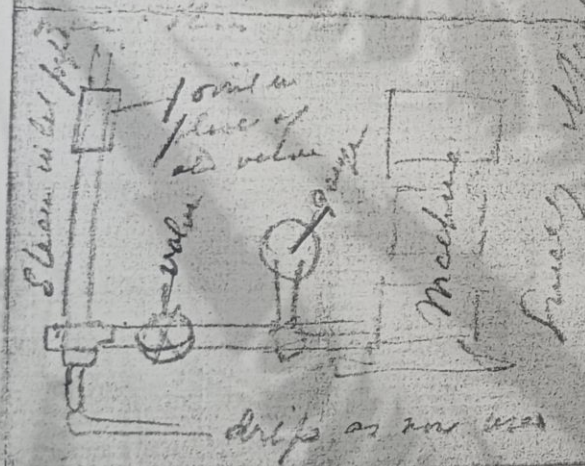 Steam inlet pipe
Joint in
place of
old valve
valve
Gauge
Machine
drip as now used